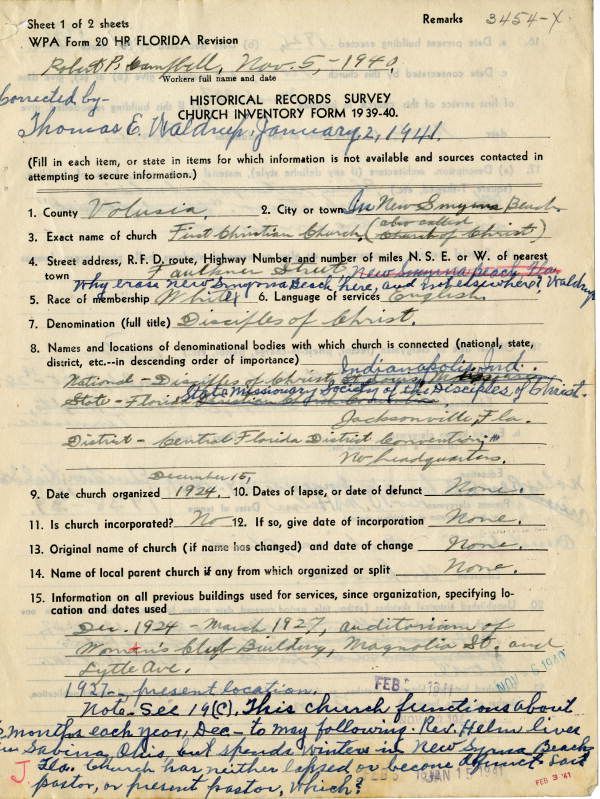 Sheet 1 of 2 sheets
Remarks 3454-X
WPA Form 20 HR FLORIDA Revision
Robert P. Campbell, Nov. 5, -1940,
Workers full name and date
Corrected by-
HISTORICAL RECORDS SURVEY
CHURCH INVENTORY FORM 1939-40.
Thomas E. Waldrup, January 2, 1941.
(Fill in each item, or state in items for which information is not available and sources contacted in
attempting to secure information.)
1. County Volusia, 2. City or town In New Smyrna Beach
3. Exact name of church First Christian Church, (also called Church of Christ)
4. Street address, R. F. D. route, Highway Number and number of miles N. S. E. or W. of nearest
town Faulkner Street, New Smyrna Beach, Fla.
Why erase New Smyrna Beach here, and not elsewhere? Waldrup
5. Race of membership White 6. Language of services English.
7. Denomination (full title) Disciples of Christ.
8. Names and locations of denominational bodies with which church is connected (national, state,
district, etc.--in descending order of importance) Indianapolis, Ind.
National - Disciples of Christ,
State - Florida State Missionary Society of the Disciples, of Christ.
Jacksonville, Fla.
District - Central Florida District Convention,
No headquarters.
December 15,
9. Date church organized 1924. 10. Dates of lapse, or date of defunct None.
11. Is church incorporated? No 12. If so, give date of incorporation None.
13. Original name of church (if name has changed) and date of change None.
14. Name of local parent church if any from which organized or split None.
15. Information on all previous buildings used for services, since organization, specifying lo-
cation and dates used
Dec. 1924 - March 1927, auditorium of
Woman's Club Building, Magnolia St. and
Lytle Ave.
1927 - present location.
FEB 1941
NOV 6 1940
Note - See 19(C). This church functions about
months each year, Dec - to May following. Rev. Helm lives
in Sabina, Ohio but spends winters in New Smyrna Beach,
Fla. Church has neither lapsed or become defunct. Last
FEB 5 1941
JAN 15 1941
J
pastor, or present pastor, which?
FEB 3 '41